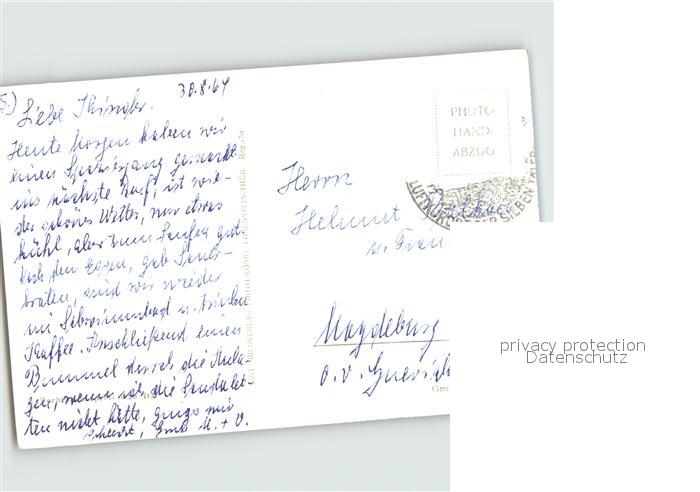 5.) Liebe Kinder. 30.8.64
Heute Morgen haben wir
einen Spaziergang gemacht
ins nächste Dorf, ist wie-
der schönes Wetter, nur etwas
kühl, aber zum Laufen gut
Nach dem Essen, gab Sauer-
braten, sind wir wieder
im Schwimmbad u. trinken
Kaffee. Anschließend einen
Bummel durch die Anla-
gen, wenn ich die Sandalet-
ten nicht hätte, gings mir
schlecht, Gruß M. + V.
PHOTO
HAND-
ABZUG
LUFTKURORT
SIEBEN TÄLER
Herrn
Helmut
u. Frau
Magdeburg
o. v. Guerick
privacy protection
Datenschutz